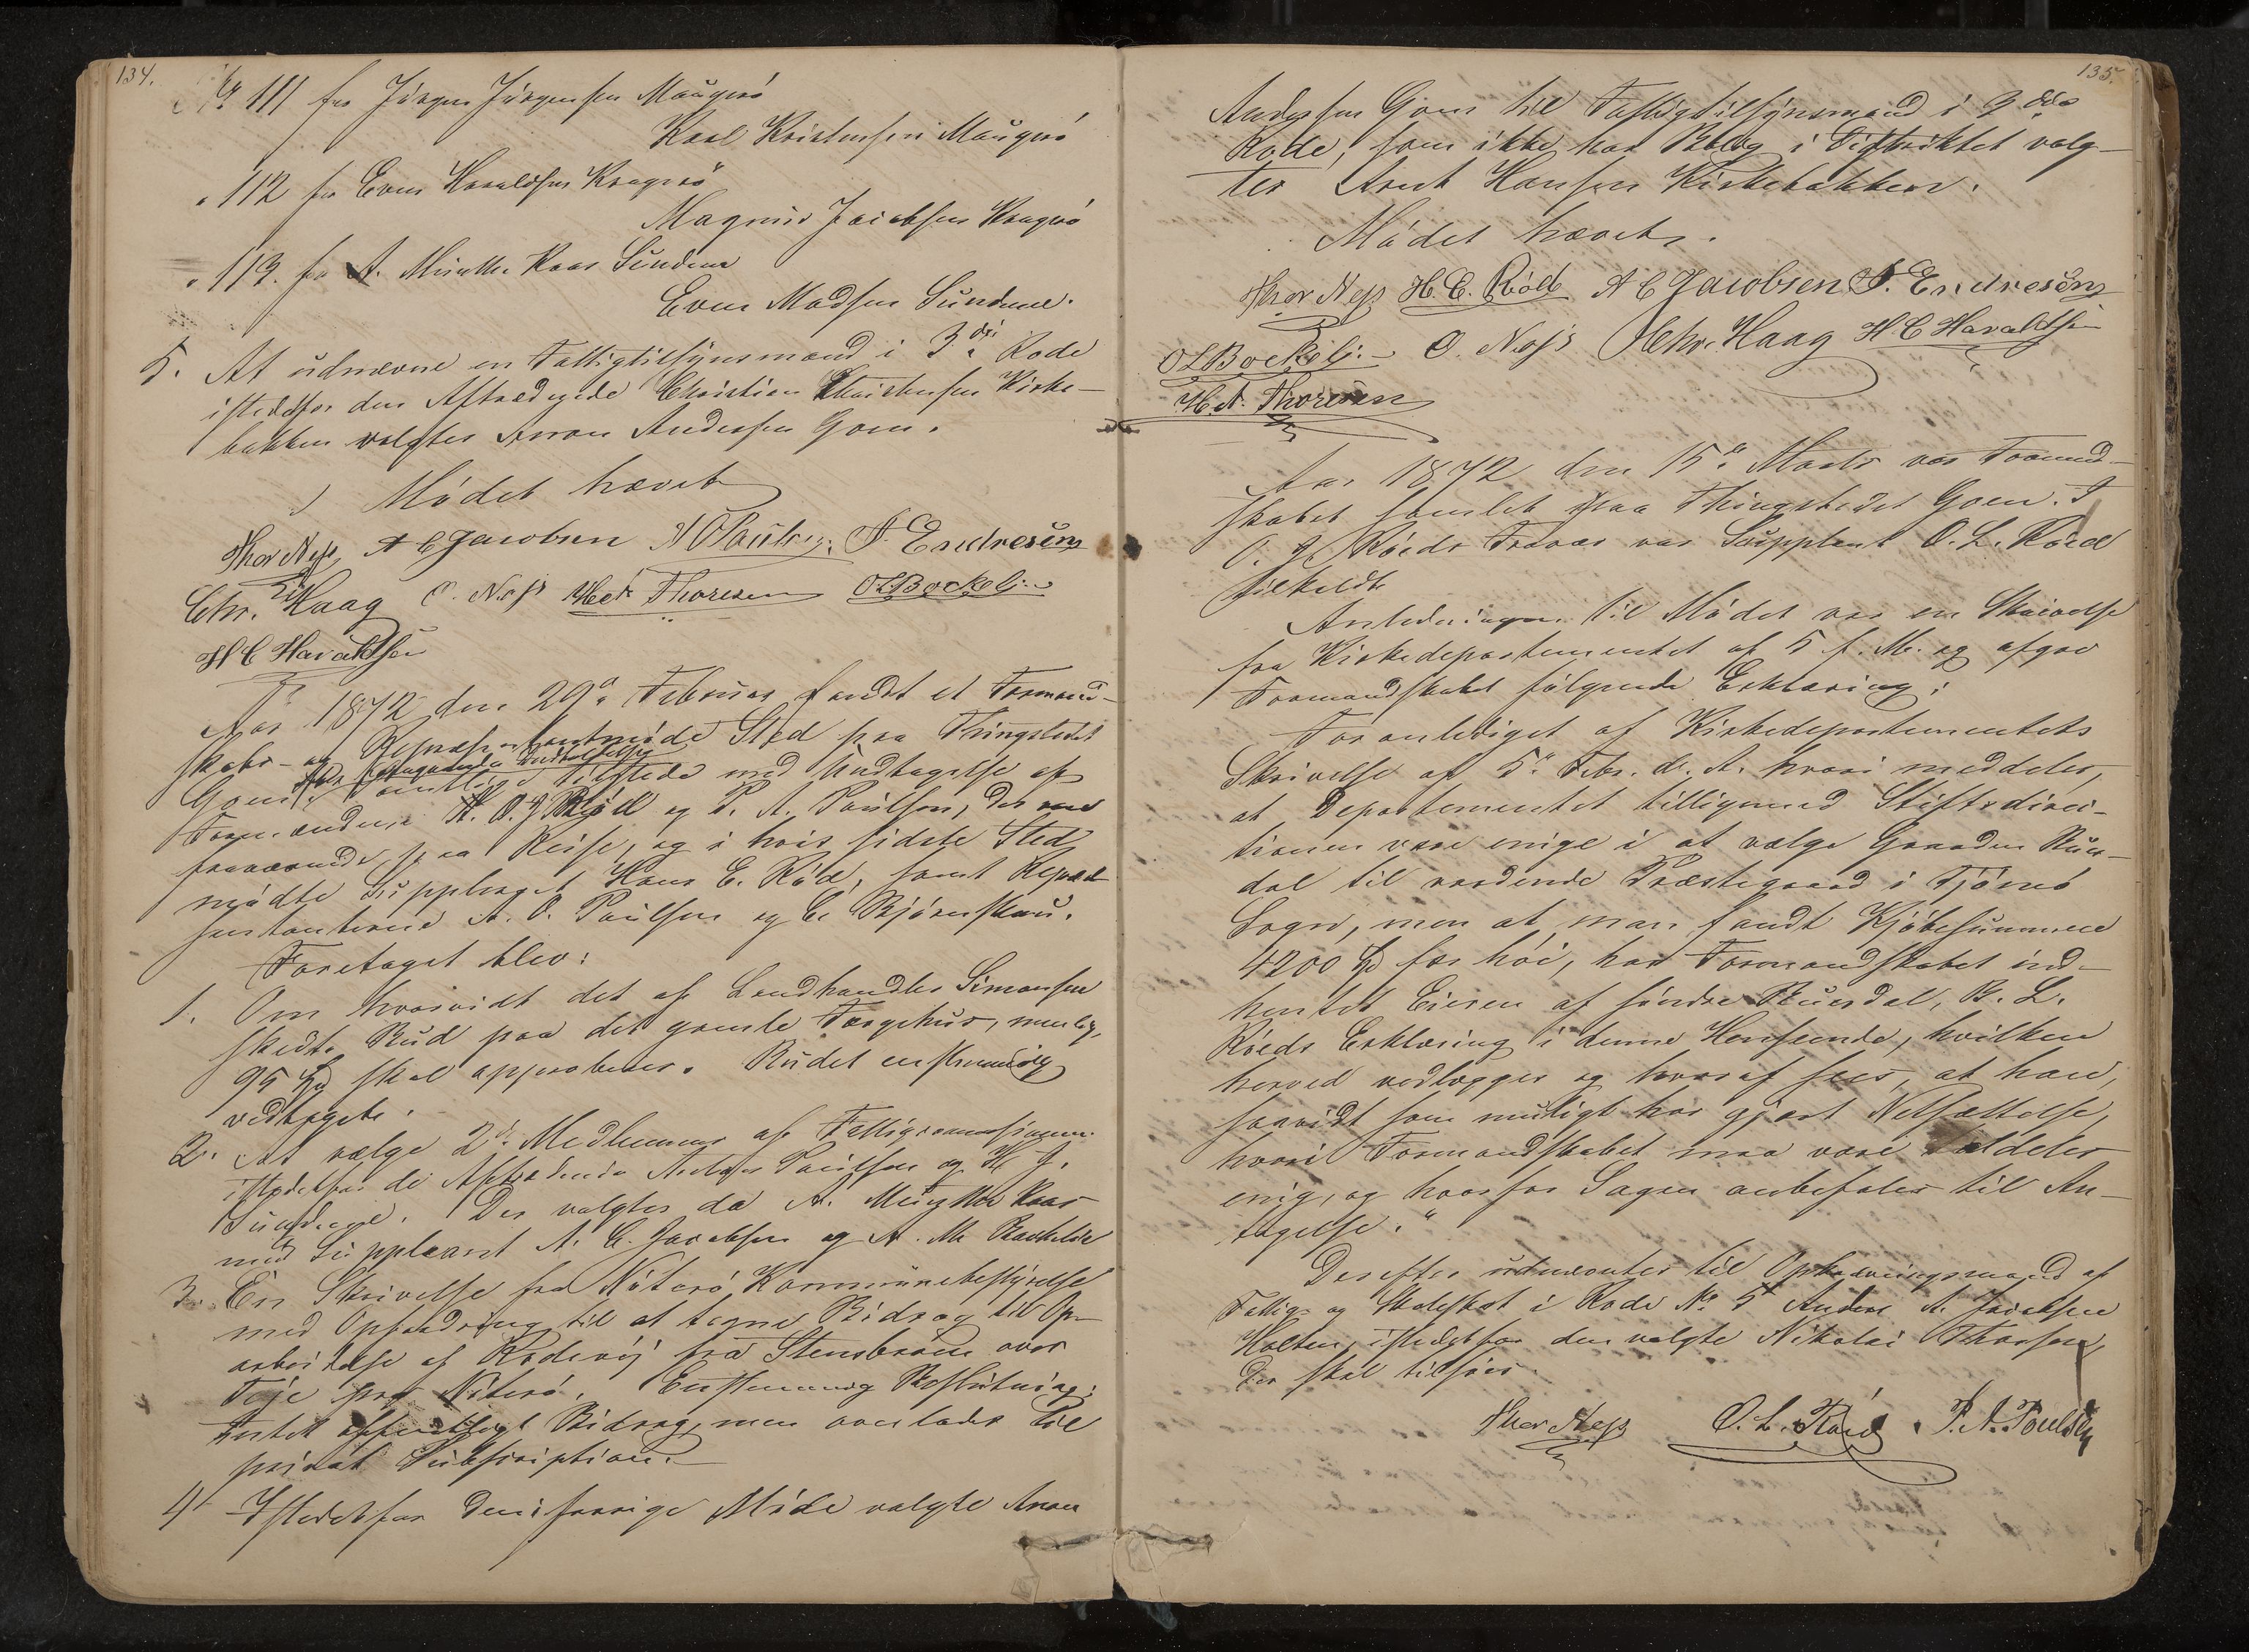 134.
No 111 for Jörgen Jörgensen Maugerö
Karl Kristensen Maugerö
" 112 for Even Haraldsen Kragerö
Magnus Jacobsen Kragerö
" 113. for A. Müller Kaas Sundene
Even Madsen Sundene.
5. At udnævne en Fattigtilsynsmand i 3die Rode
istedetfor den Aftrædende Christian Christensen Kirke-
bakken valgtes Aron Andersen Goen.
Mödet hævet
Thor Næss A C Jacobsen N O Paulsen. F. Endresen
Chr. Haag O. Næss H. A. Thoresen O L Bockelie
H C Haraldsen
Aar 1872 den 29de Februar fandt et Formand-
skabs- og Repræsentantmöde Sted paa Thingstedet
Goen. Samtlige tilstede med Undtagelse af
Formændene O. J. Röed og P. A. Paulsen, der var
fraværende paa Reise, og i hvis sidste Sted
mödte Suppleant Hans E. Röd, samt Repræ-
sentanterne N. O. Paulsen og C. Bjørnskau.
Foretaget blev:
1. Om hvorvidt det af Landhandler Simonsen
skedte Bud paa det gamle Færgehus, nemlig,
95 Spd skal approberes. Budet enstemmig
vedtaget.
2. At vælge 2de Medlemmer af Fattigcommissionen
istedetfor de Aftrædende Anders Paulsen og H. J.
Sundene. Der valgtes da A. Müller Kaas
med Suppleant A. C. Jacobsen og A. M.
3. En Skrivelse fra Nöterö Kommunebestyrelse
med Opfordring til at tegne Bidrag til Op-
arbeidelse af Rodevej fra Stensbroen over
Teje paa Nöterö. Enstemmig Beslutning:
Intet offentligt Bidrag, men overlades til
privat Subscription.
4. Istedetfor den i forrige Möde valgte Aron
135.
Andersen Goen til Fattigtilsynsmand i 3die
Rode, som ikke har Bolig i Distriktet valg-
tes Arnt Hansen Kirkebakken.
Mödet hævet.
Thor Næss H. E. Röd A C Jacobsen F. Endresen
O L Bockelie O. Næss Chr. Haag H C Haraldsen
H. A. Thoresen
Aar 1872 den 15de Marts var Formand-
skabet samlet paa Thingstedet Goen. I
O. J. Röeds Fravær var Suppleant O. L. Röed
tilkaldt.
Anledningen til Mödet var en Skrivelse
fra Kirkedepartementet af 5 f. M. og afgav
Formandskabet fölgende Erklæring:
Foranlediget af Kirkedepartementets
Skrivelse af 5te Febr. d. A. hvori meddeles,
at Departementet tilligemed Stiftsdirec-
tionen være enige i at vælge Gaarden Buer-
dal til vordende Præstegaard i Tjömö
Sogn, men at man fandt Kjöbesummen
4200 Spd for höi, har Formandskabet ind-
hentet Eieren af söndre Buerdal, B. L.
Röeds Erklæring i denne Henseende, hvilken
herved vedlægges og hvoraf sees, at han,
saavidt som muligt har gjort Nedsættelse,
hvori Formandskabet maa være aldeles
enig, og hvorfor Sagen anbefales til An-
tagelse."
Derefter udnævntes til Opkrævningsmand af
Fattig- og Skoleskat i Rode No 5 Anders A. Jacobsen
Holten, istedetfor den valgte Nikolai Thorsen,
der skal tilsöes.
Thor Næss O. L. Röed. P. A. Poulsen